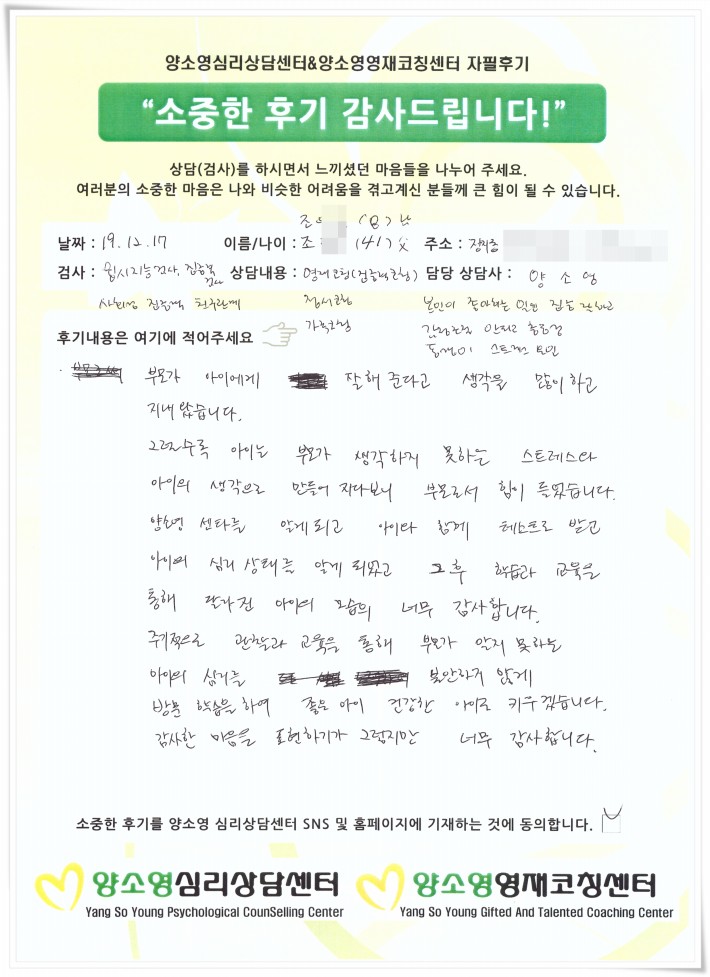 양소영심리상담센터&양소영영재코칭센터 자필후기
“소중한 후기 감사드립니다!”
상담(검사)를 하시면서 느끼셨던 마음들을 나누어 주세요.
여러분의 소중한 마음은 나와 비슷한 어려움을 겪고계신 분들께 큰 힘이 될 수 있습니다.
조
날짜 : 19.12.17 이름/나이 : 조 (41) 父 주소 :
검사 : 웩시지능검사, 집중력 검사 상담내용 : 영재코칭(집중력코칭) 담당 상담사 : 양 소 영
사회성 집중력 친구관계 정서코칭 본인이 좋아하는 일엔 집중 잘하고
가족코칭 감정조절 안되고 충동적
후기내용은 여기에 적어주세요 동생이 스트레스 요인
부모가 아이에게 잘해 준다고 생각을 많이 하고
지내 왔습니다.
그럴수록 아이는 부모가 생각하지 못하는 스트레스와
아이의 생각으로 만들어 지다보니 부모로서 힘이 들었습니다.
양소영 센타를 알게 되고 아이와 함께 테스트로 받고
아이의 심리 상태를 알게 되었고 그 후 학습과 교육을
통해 달라진 아이의 모습의 너무 감사합니다.
주기적으로 관찰과 교육을 통해 부모가 알지 못하는
아이의 심리를 불안하지 않게
방문 학습을 하여 좋은 아이 건강한 아이로 키우겠습니다.
감사한 마음을 표현하기가 그렇지만 너무 감사합니다.
소중한 후기를 양소영 심리상담센터 SNS 및 홈페이지에 기재하는 것에 동의합니다.
양소영심리상담센터 양소영영재코칭센터
Yang So Young Psychological CounSelling Center Yang So Young Gifted And Talented Coaching Center